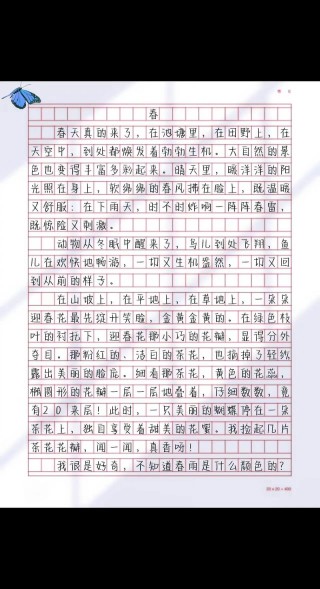 春
春天真的来了，在池塘里，在田野上，在
天空中，到处都焕发着勃勃生机。大自然的景
色也变得丰富多彩起来。晴天里，暖洋洋的阳
光照在身上，软绵绵的春风拂在脸上，既温暖
又舒服；在下雨天，时不时炸响一阵阵春雷，
既惊险又刺激。
动物从冬眠中醒来了，鸟儿到处飞翔，鱼
儿在欢快地畅游，一切又生机盎然，一切又回
到从前的样子。
在山坡上，在平地上，在草地上，一朵朵
迎春花最先绽开笑脸，金黄金黄的。在绿色枝
叶的衬托下，迎春花那小巧的花瓣，显得分外
夺目。那粉红的、洁白的茶花，也摘掉了轻纱，
露出美丽的脸庞。细看那茶花，黄色的花蕊，
椭圆形的花瓣一层一层地叠着，仔细数数，竟
有20来层！此时，一只美丽的蝴蝶停在一朵
茶花上，独自享受着甜美的花蜜。我捡起几片
茶花花瓣，闻一闻，真香呀！
我很是好奇，不知道春雨是什么颜色的？
20×20=400